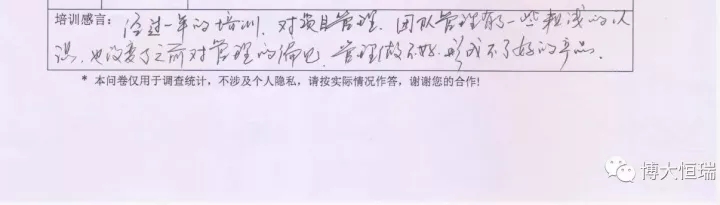 培训感言：经过一年的培训，对项目管理、团队管理有了一些粗浅的认
识，也改变了之前对管理的偏见，管理做不好，形成不了好的产品。
* 本问卷仅用于调查统计，不涉及个人隐私，请按实际情况作答，谢谢您的合作!
博大恒瑞